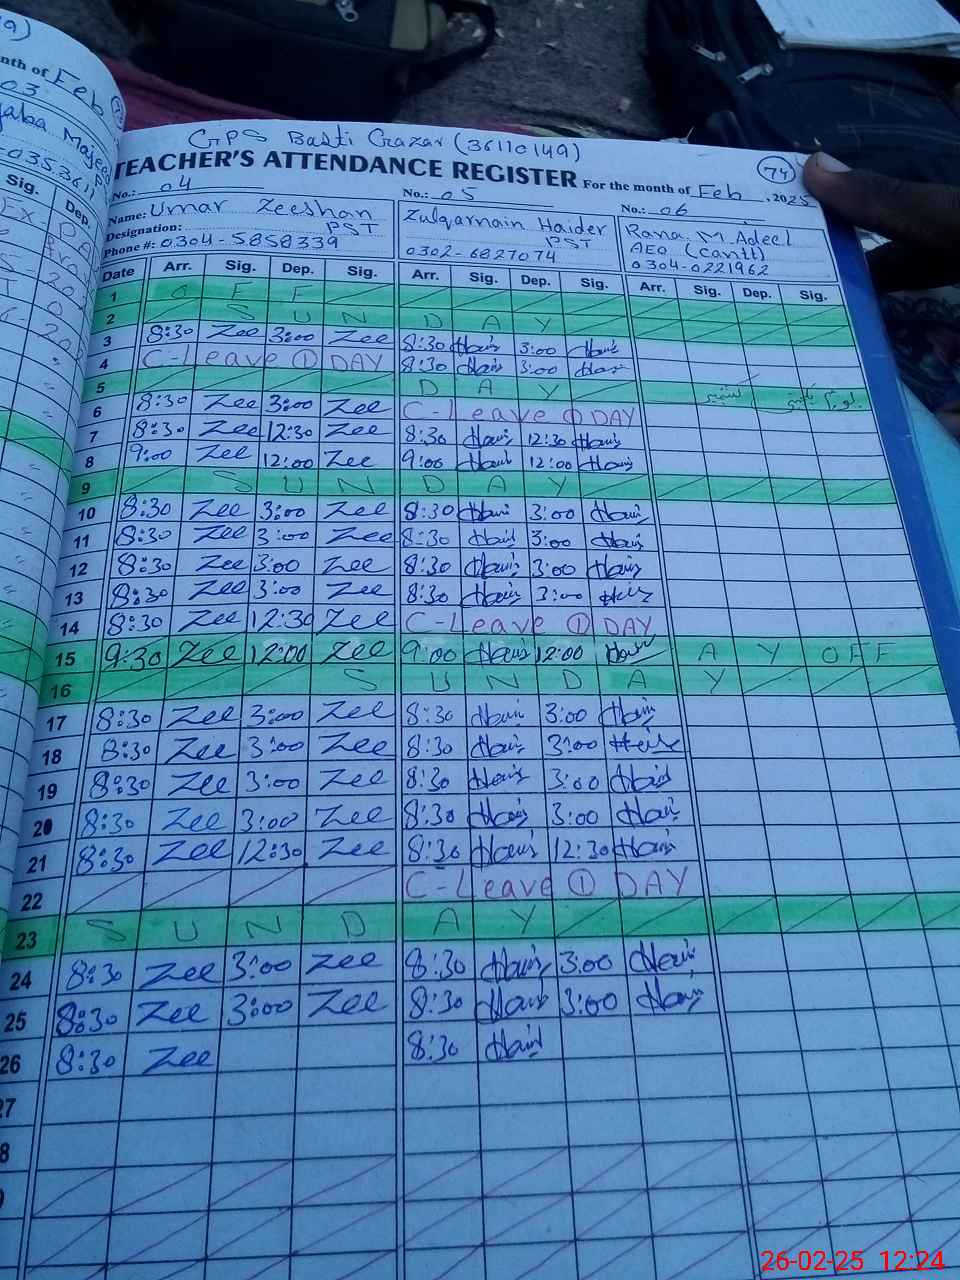 GPS Basti Gazar (36110149)
TEACHER'S ATTENDANCE REGISTER For the month of Feb, 2025 74
No.: 04 No.: 05 No.: 06
Name: Umar Zeeshan Zulqarnain Haider Rana M Adeel
Designation: PST PST AEO (cantt)
Phone #: 0304-5858339 0302-6827074 0304-0221962
Date Arr. Sig. Dep. Sig. Arr. Sig. Dep. Sig. Arr. Sig. Dep. Sig.
1 O F F
2 S U N D A Y
3 8:30 Zee 3:00 Zee 8:30 Hai 3:00 Hai
4 C-Leave 1 DAY 8:30 Hai 3:00 Hai
5 D A Y
6 8:30 Zee 3:00 Zee C-Leave 1 DAY
7 8:30 Zee 12:30 Zee 8:30 Hai 12:30 Hai
8 9:00 Zee 12:00 Zee 9:00 Hai 12:00 Hai
9 S U N D A Y
10 8:30 Zee 3:00 Zee 8:30 Hai 3:00 Hai
11 8:30 Zee 3:00 Zee 8:30 Hai 3:00 Hai
12 8:30 Zee 3:00 Zee 8:30 Hai 3:00 Hai
13 8:30 Zee 3:00 Zee 8:30 Hai 3:00 Hai
14 8:30 Zee 12:30 Zee C-Leave 1 DAY
15 9:30 Zee 12:00 Zee 9:00 Hai 12:00 Hai A Y OFF
16 S U N D A Y
17 8:30 Zee 3:00 Zee 8:30 Hai 3:00 Hai
18 8:30 Zee 3:00 Zee 8:30 Hai 3:00 Hai
19 8:30 Zee 3:00 Zee 8:30 Hai 3:00 Hai
20 8:30 Zee 3:00 Zee 8:30 Hai 3:00 Hai
21 8:30 Zee 12:30 Zee 8:30 Hai 12:30 Hai
22 C-Leave 1 DAY
23 S U N D A Y
24 8:30 Zee 3:00 Zee 8:30 Hai 3:00 Hai
25 8:30 Zee 3:00 Zee 8:30 Hai 3:00 Hai
26 8:30 Zee 8:30 Hai
27
8
26-02-25 12:24